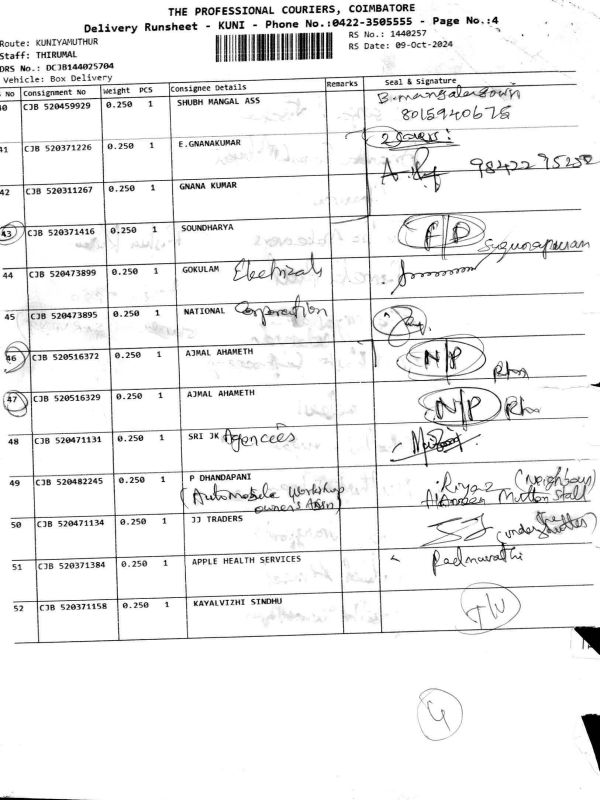 THE PROFESSIONAL COURIERS, COIMBATORE
Delivery Runsheet - KUNI - Phone No.:0422-3505555 - Page No.:4
Route: KUNIYAMUTHUR RS No.: 1440257
Staff: THIRUMAL RS Date: 09-Oct-2024
DRS No.: DCJB144025704
Vehicle: Box Delivery
No Consignment No Weight PCS Consignee Details Remarks Seal & Signature
40 CJB 520459929 0.250 1 SHUBH MANGAL ASS
8015940675
41 CJB 520371226 0.250 1 E.GNANAKUMAR 2 covers:
42 CJB 520311267 0.250 1 GNANA KUMAR
43 CJB 520371416 0.250 1 SOUNDHARYA
44 CJB 520473899 0.250 1 GOKULAM Electricals
45 CJB 520473895 0.250 1 NATIONAL Corporation
46 CJB 520516372 0.250 1 AJMAL AHAMETH N/P
47 CJB 520516329 0.250 1 AJMAL AHAMETH N/P
48 CJB 520471131 0.250 1 SRI JK Agencies
49 CJB 520482245 0.250 1 P DHANDAPANI Riyaz (Neighbour)
(Automobile workshop Mutton Stall
owner's Assn)
50 CJB 520471134 0.250 1 JJ TRADERS
51 CJB 520371384 0.250 1 APPLE HEALTH SERVICES Padmavathi
52 CJB 520371158 0.250 1 KAYALVIZHI SINDHU